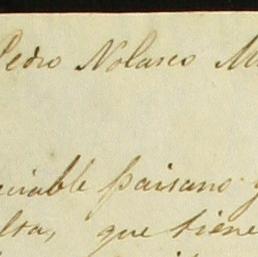 Pedro Nolasco M
ciable paisano y
lta, que tiene